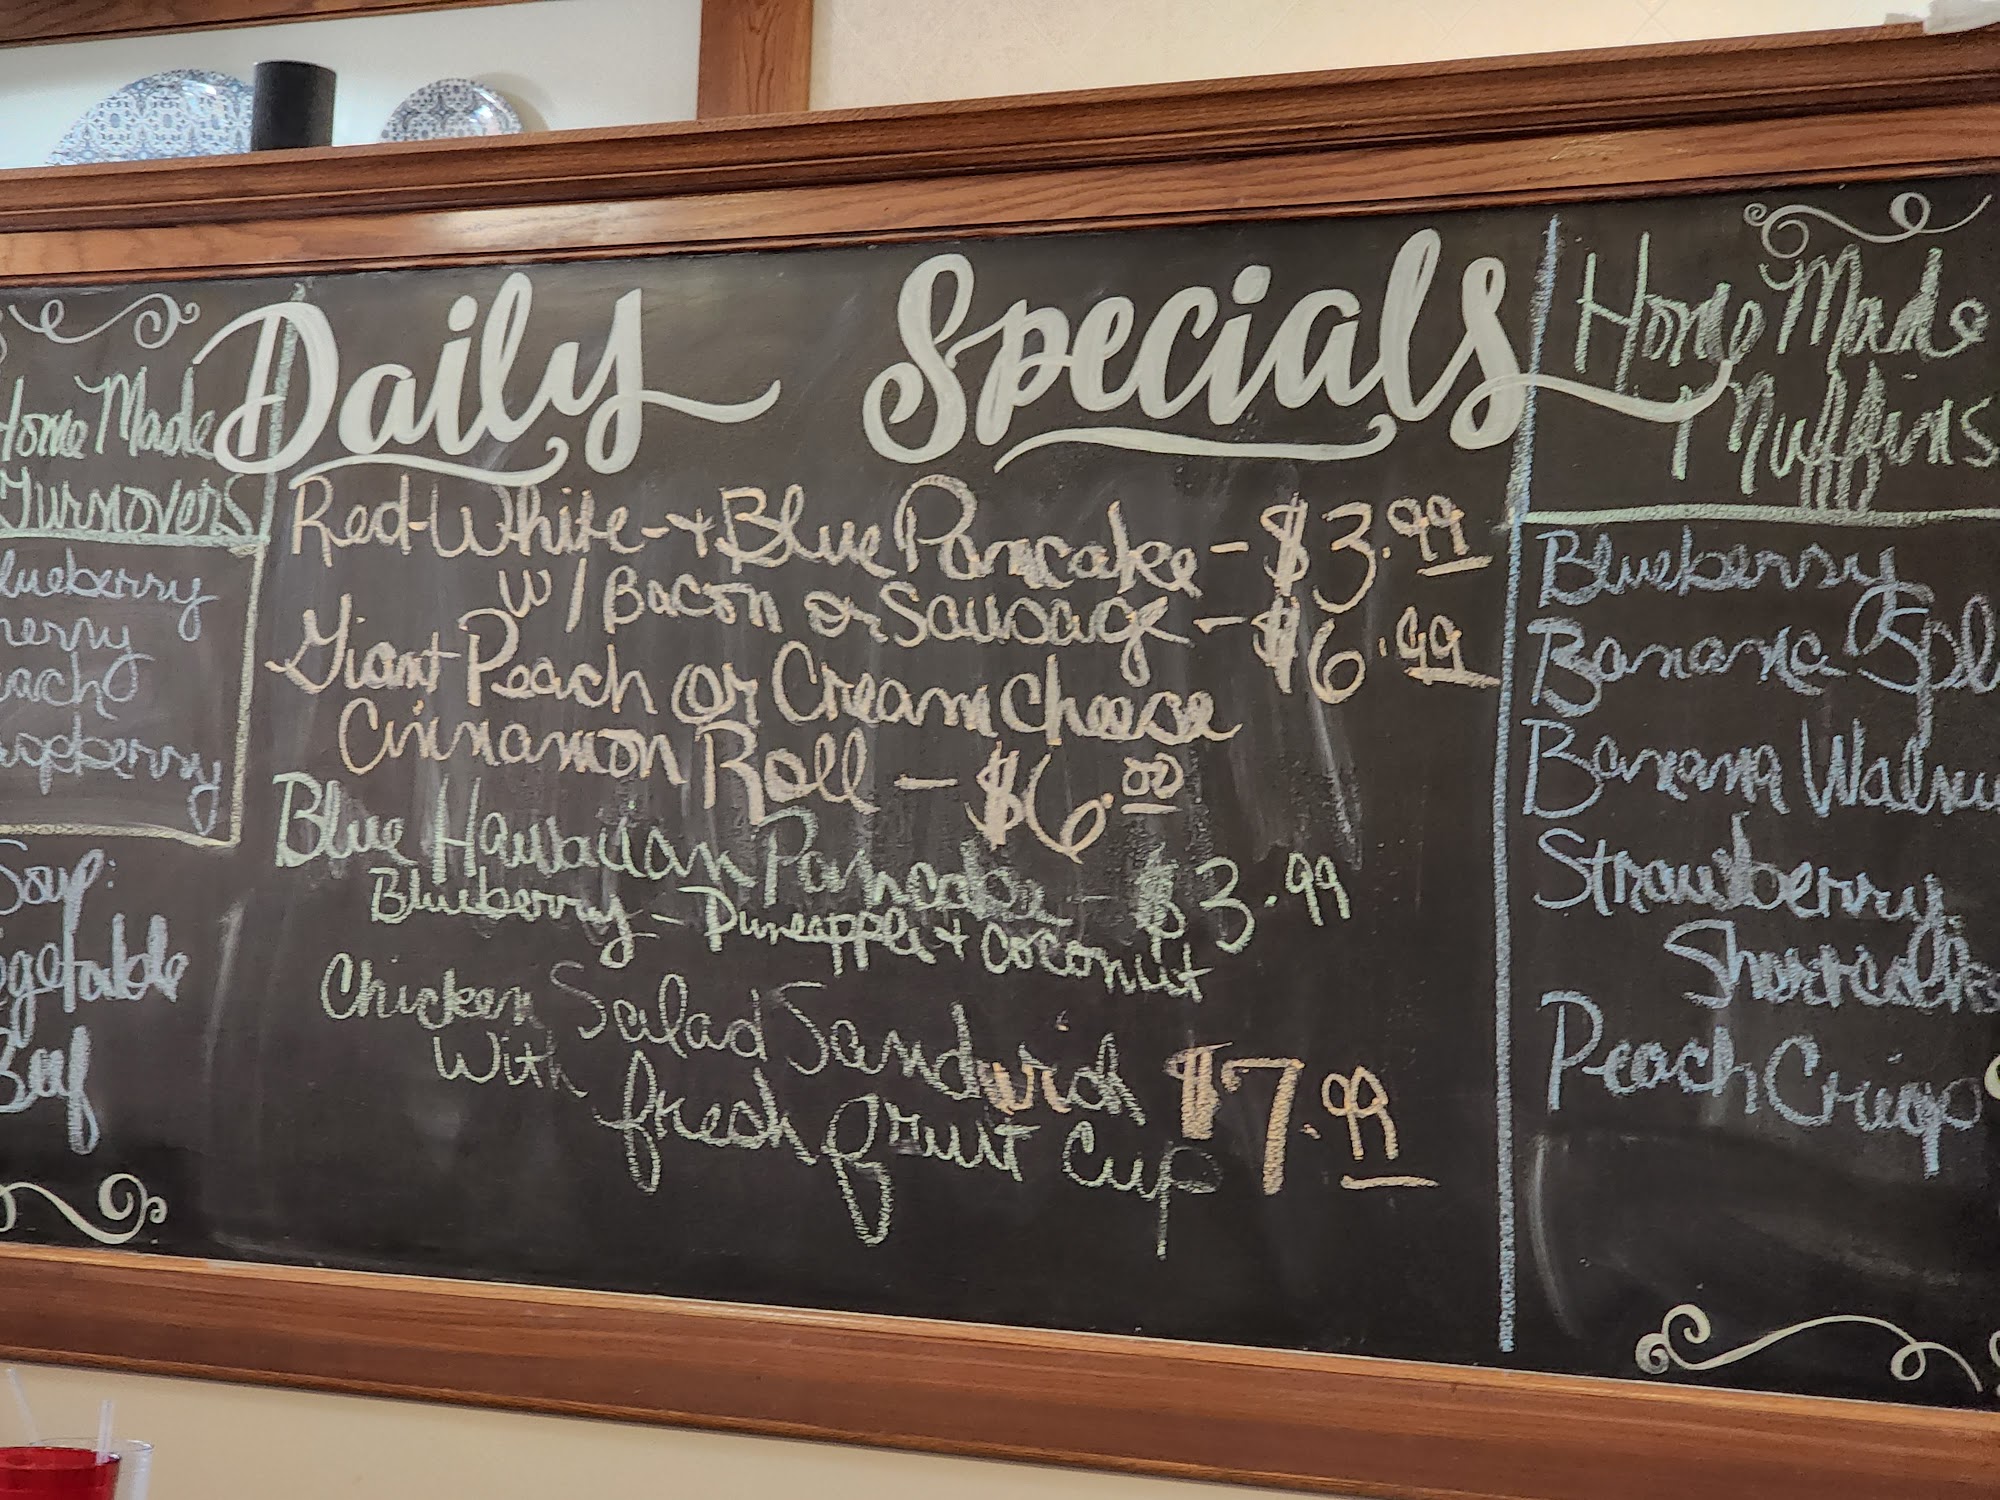 Daily Specials
Home Made
Turnovers
lueberry
herry
each
aspberry
Soup:
egetable
Beef
Red-White-+Blue Pancake - $3.99
w/Bacon or Sausage - $6.99
Giant Peach or Cream Cheese
Cinnamon Roll - $6.00
Blue Hawaiian Pancake - $3.99
Blueberry - Pineapple + Coconut
Chicken Salad Sandwich
With fresh fruit cup $7.99
Home Made
Muffins
Blueberry
Banana Spl
Banana Walnu
Strawberry
Shortcake
Peach Crisp